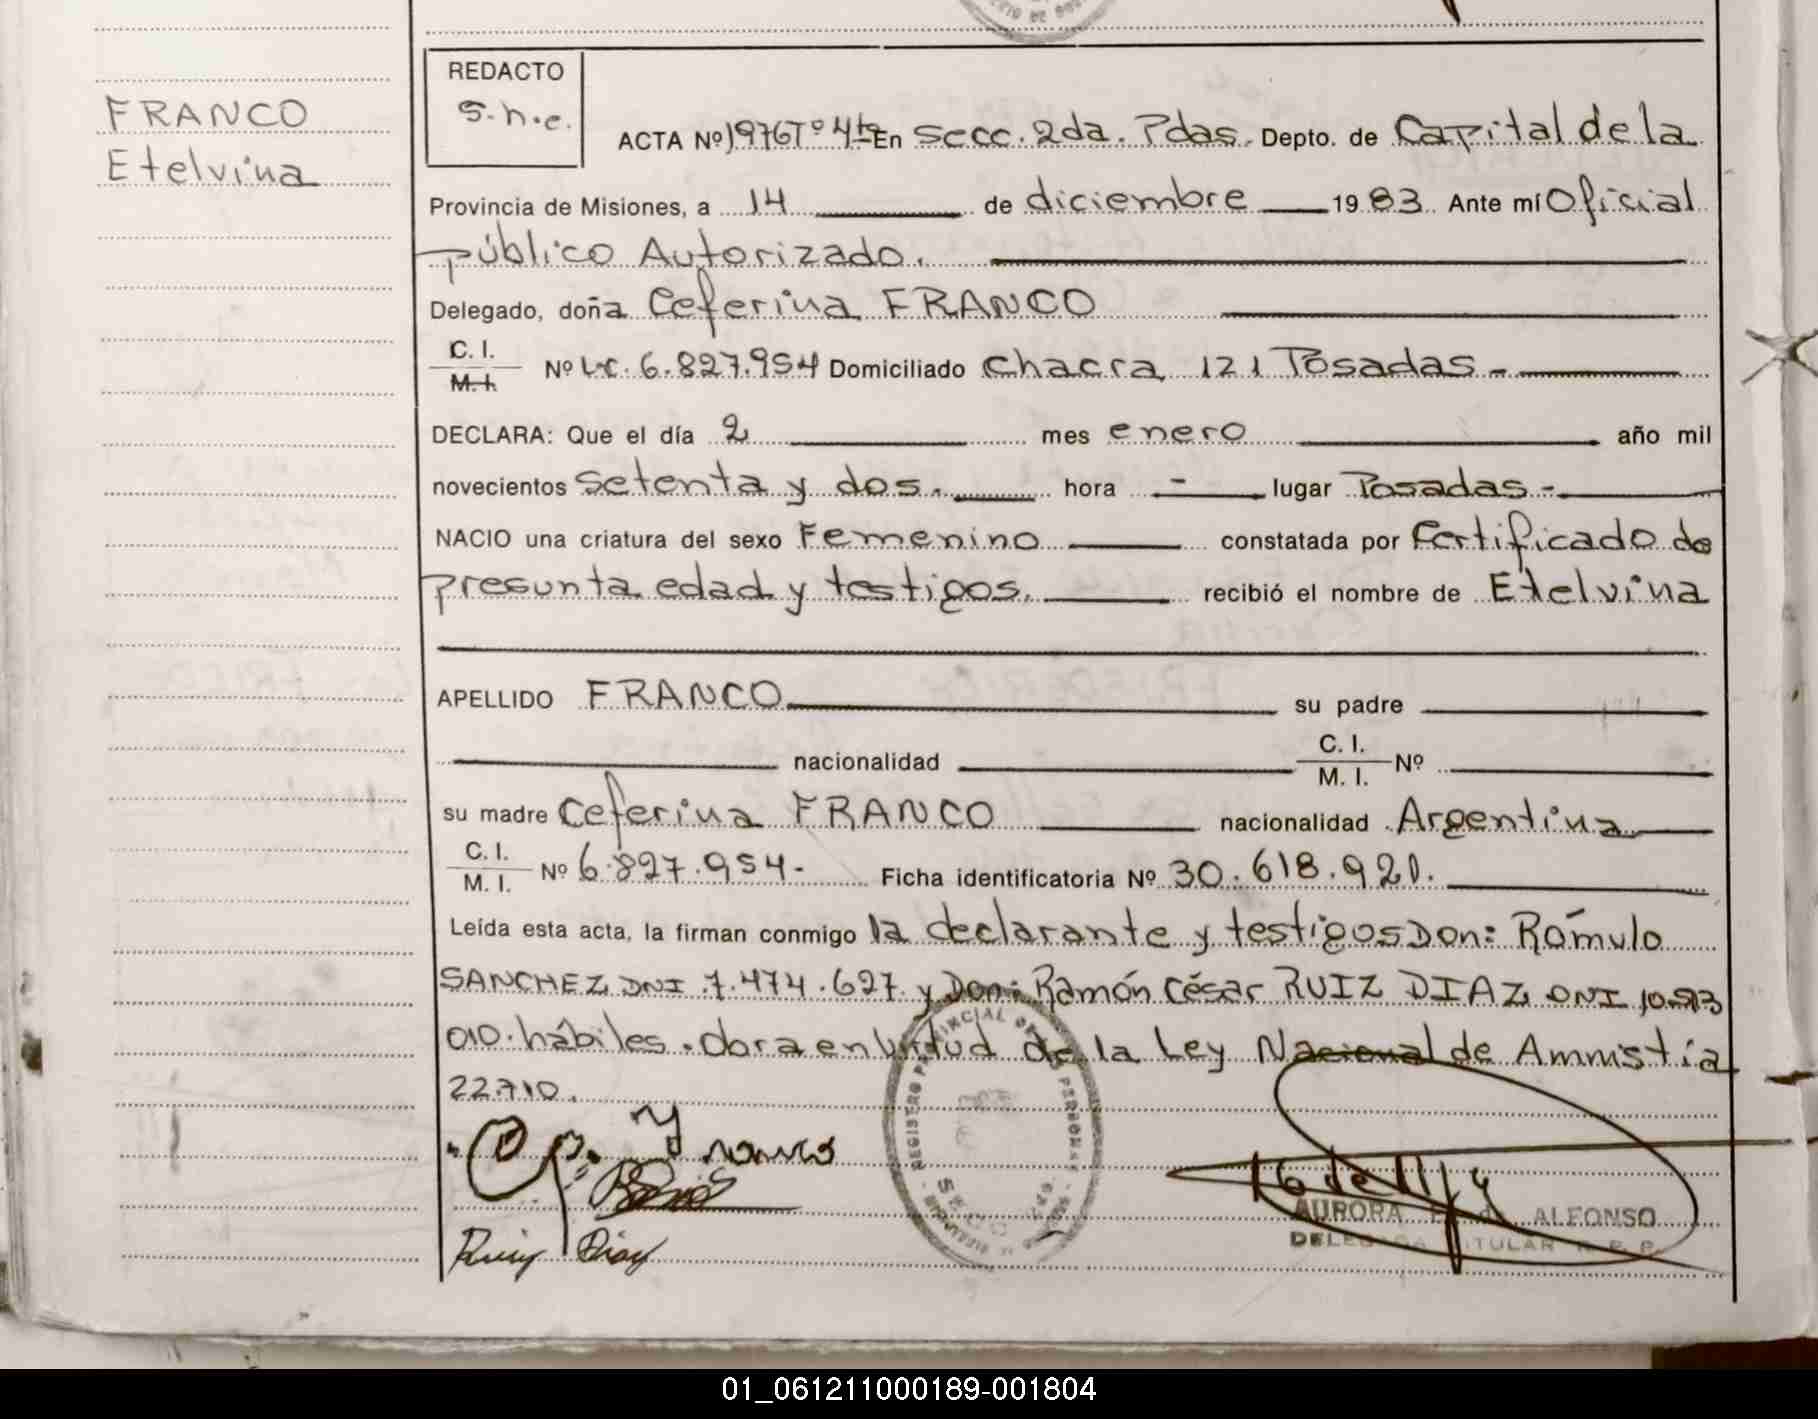 FRANCO
Etelvina
REDACTO
s.h.e.
ACTA Nº 1976 Tº 4to En Secc. 2da. Pdas. Depto. de Capital de la
Provincia de Misiones, a 14 de diciembre 1983. Ante mí Oficial
público Autorizado.
Delegado, doña Ceferina FRANCO
C. I.
M. I. Nº L.C. 6.827.954 Domiciliado Chacra 121 Posadas -
DECLARA: Que el día 2 mes enero año mil
novecientos setenta y dos. hora - lugar Posadas -
NACIO una criatura del sexo Femenino constatada por Certificado de
presunta edad y testigos. recibió el nombre de Etelvina
APELLIDO FRANCO su padre
nacionalidad C. I.
M. I. Nº
su madre Ceferina FRANCO nacionalidad Argentina
C. I.
M. I. Nº 6.827.954- Ficha identificatoria Nº 30.618.920.
Leída esta acta, la firman conmigo la declarante y testigos Don: Rómulo
SANCHEZ DNI 7.474.627 y Don: Ramón César RUIZ DIAZ DNI
010. hábiles. obra en virtud de la Ley Nacional de Amnistía
22.710.
Franco
Ruiz Diaz
REGISTRO PROVINCIAL DE LAS PERSONAS
AURORA de ALFONSO
DELEGADA TITULAR R. P. P.
01_061211000189-001804